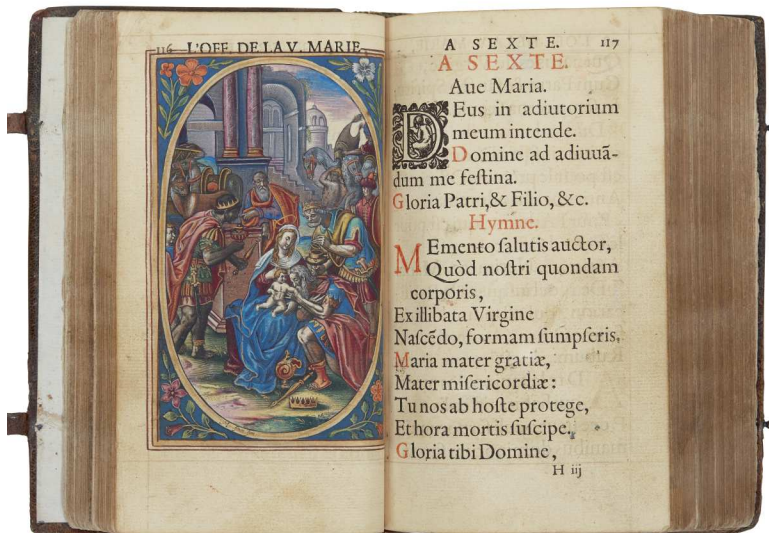 116 L'OFF. DE LA V. MARIE
A SEXTE. 117
A SEXTE.
Aue Maria.
DEus in adiutorium
meum intende.
Domine ad adiuuā-
dum me feſtina.
Gloria Patri,& Filio, &c.
Hymne.
MEmento ſalutis auctor,
Quòd noſtri quondam
corporis,
Ex illibata Virgine
Naſcēdo, formam ſumpſeris,
Maria mater gratiæ,
Mater miſericordiæ:
Tu nos ab hoſte protege,
Et hora mortis ſuſcipe.
Gloria tibi Domine,
H iij